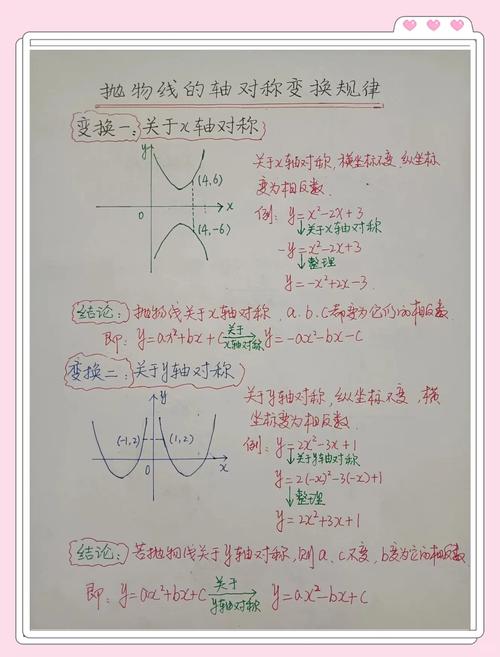 抛物线的轴对称变换规律
变换一：关于x轴对称
y
(4,6)
0
x
(4,-6)
关于x轴对称，横坐标不变，纵坐标
变为相反数.
例：y=x²-2x+3
↓关于x轴对称
-y=x²-2x+3
↓整理
y=-x²+2x-3.
结论：抛物线关于x轴对称，a.b.c都变为它们的相反数.
即：y=ax²+bx+c 关于x轴对称→ y=-ax²-bx-c
变换二：关于y轴对称
y
(-1,2)
(1,2)
0
x
关于y轴对称，纵坐标不变，横
坐标变为相反数.
例：y=2x²-3x+1
↓关于y轴对称
y=2(-x)²-3(-x)+1
↓整理
y=2x²+3x+1
结论：若抛物线关于y轴对称，则a、c不变，b变为它的相反数.
即：y=ax²+bx+c 关于y轴对称→ y=ax²-bx+c